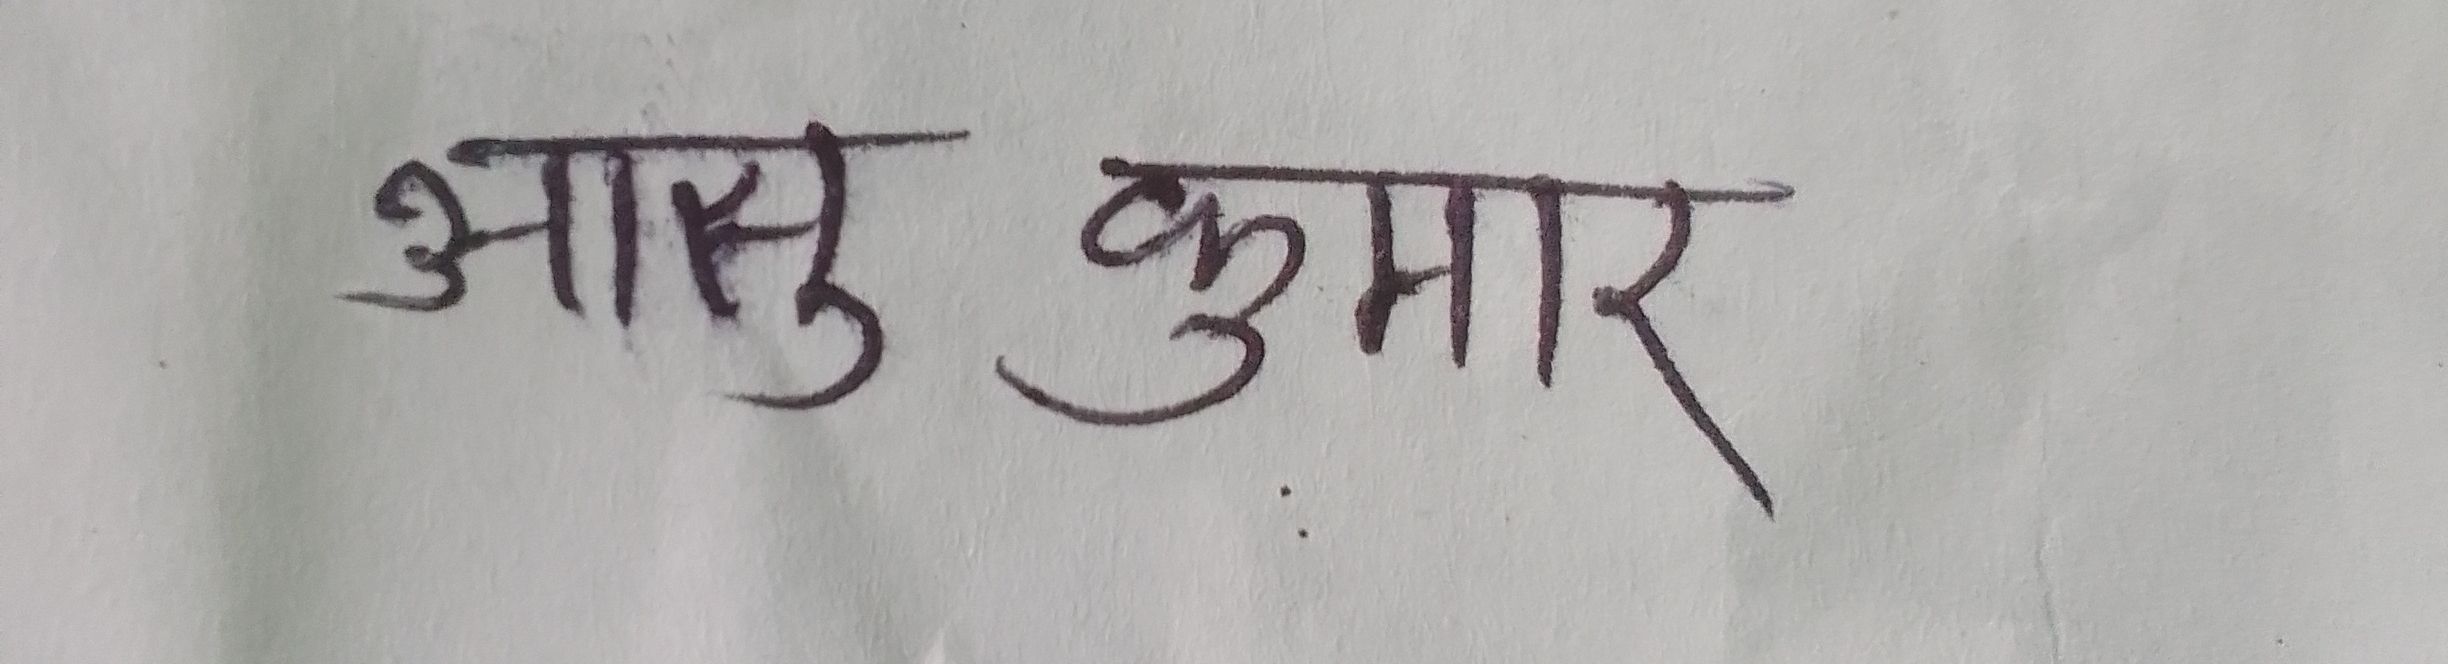 आसु कुमार